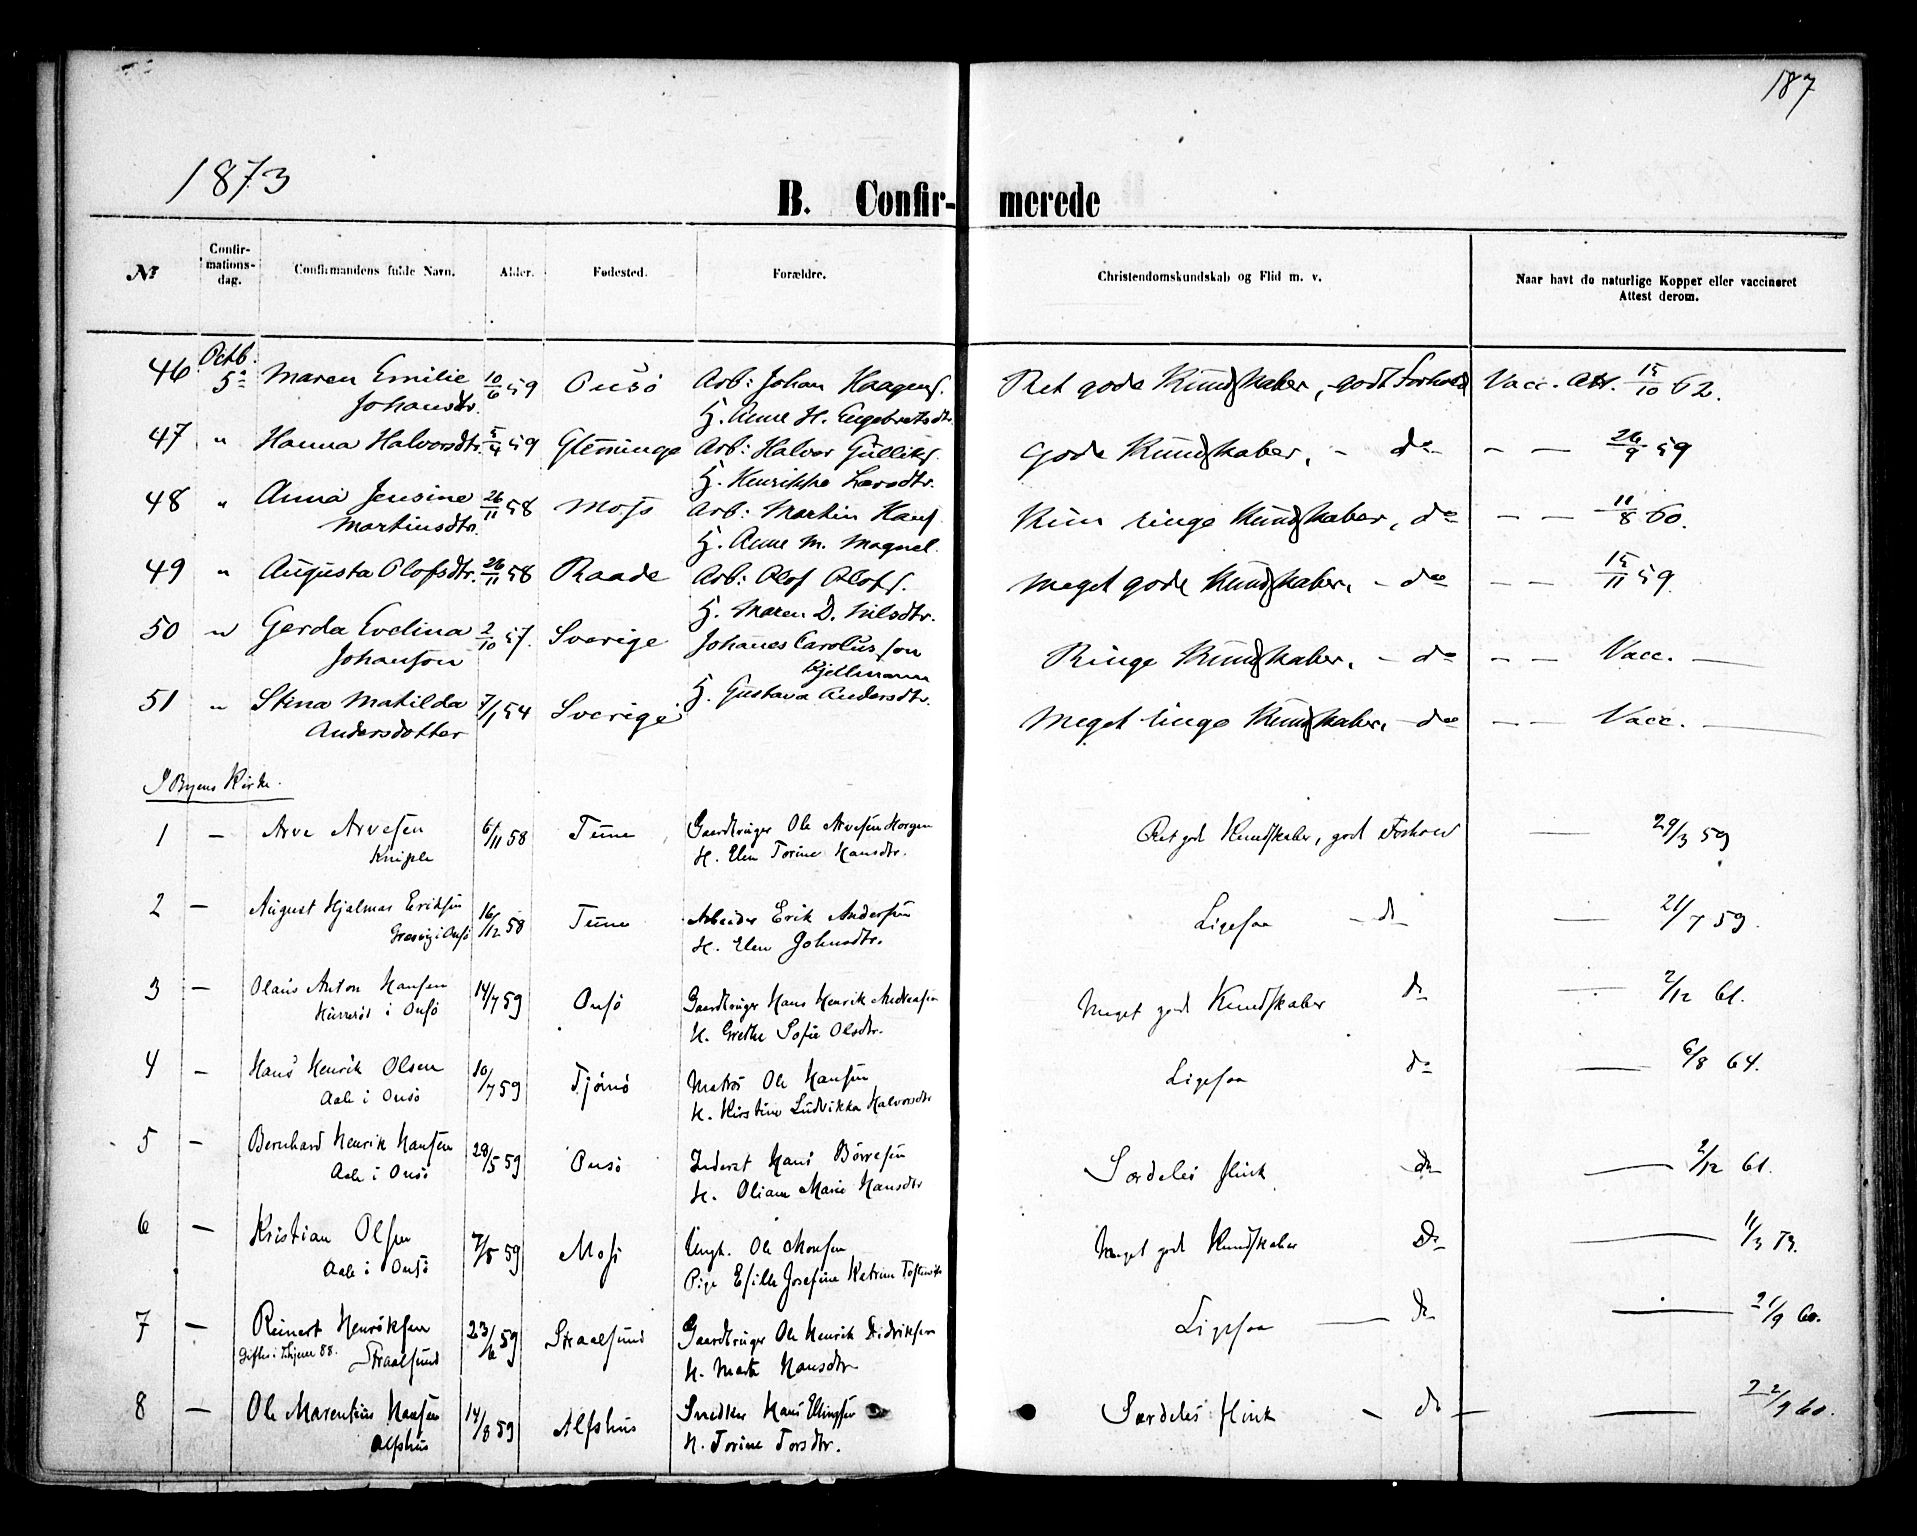 187
1873
B. Confir- merede
No
Confir-
mations-
dag.
Confirmandens fulde Navn.
Alder.
Fødested.
Forældre.
Christendomskundskab og Flid m. v.
Naar havt de naturlige Kopper eller vaccineret
Attest derom.
46 Octb. 5te Maren Emilie 10/6 59 Onsø Arb: Johan Haagens. Ret gode Kundskaber, godt Forhold Vacc. Att. 15/10 62.
Johansdtr. H. Anne H. Engebretsdtr.
47 " Hanna Halvorsdtr. 5/4 59 Glemminge Arb: Halvor Gulliks. Gode Kundskaber, - do — — 26/9 59
H. Henrikke Larsdtr.
48 " Anna Jensine 26/11 58 Moss Arb: Martin Hans. Kun ringe Kundskaber, do — — 11/8 60.
Martinsdtr. H. Anne M. Magnel.
49 " Augusta Olofsdtr. 26/11 58 Raade Arb: Olof Olofs. Meget gode Kundskaber, - do — — 15/11 59.
H. Maren D. Nilsdtr.
50 " Gerda Evelina 2/10 57. Sverige Johanes Carolusson Ringe Kundskaber, - do — — Vacc. —
Johanson Kjellmann
H. Gustava Andersdtr.
51 " Stina Matilda 7/1 54 Sverige Meget ringe Kundskaber, - do — — Vacc. —
Andersdotter
I Byens Kirke.
1 — Arve Arvesen 6/11 58 Tune Gaardbruger Ole Arvesen Horgen Ret gode Kundskaber, god Forhold — 29/3 59
Kniple H. Elen Torine Hansdtr.
2 — August Hjalmar Eriksen 16/12 58 Tune Arbeider Erik Andersen Ligesaa - do — 21/7 59.
Gresvig i Onsø H. Elen Johnsdtr.
3 — Olaus Anton Hansen 14/7 59 Onsø Gaardbruger Hans Henrik Andreasen Meget gode Kundskaber do — 2/12 61.
i Onsø H. Grethe Sofie Olsdtr.
4 — Hans Henrik Olsen 10/7 59 Tjømø Matros Ole Hansen Ligesaa do — 6/8 64.
Aale i Onsø H. Kirstine Ludvikka Halvorsdtr
5 — Bernhard Henrik Hansen 28/5 59 Onsø Inderst Hans Børresen Særdeles flink do — 2/12 61.
Aale i Onsø H. Oliane Marie Hansdtr
6 — Kristian Olsen 7/5 59 Moss Ungk. Ole Monsen Meget gode Kundskaber Do — 11/3 73.
Aale i Onsø Pige Josefine Katrine
7 — Reinert Henriksen 23/6 59 Straalsund Gaardbruger Ole Henrik Didriksen Ligesaa — do — 21/9 60.
88. Straalsund H. Marte Hansdtr
8 — Ole Marentius Hansen 14/8 59 Alfshus Snedker Hans Ellingsen Særdeles flink - do — 22/9 60.
Alfshus H. Torine Torsdtr.